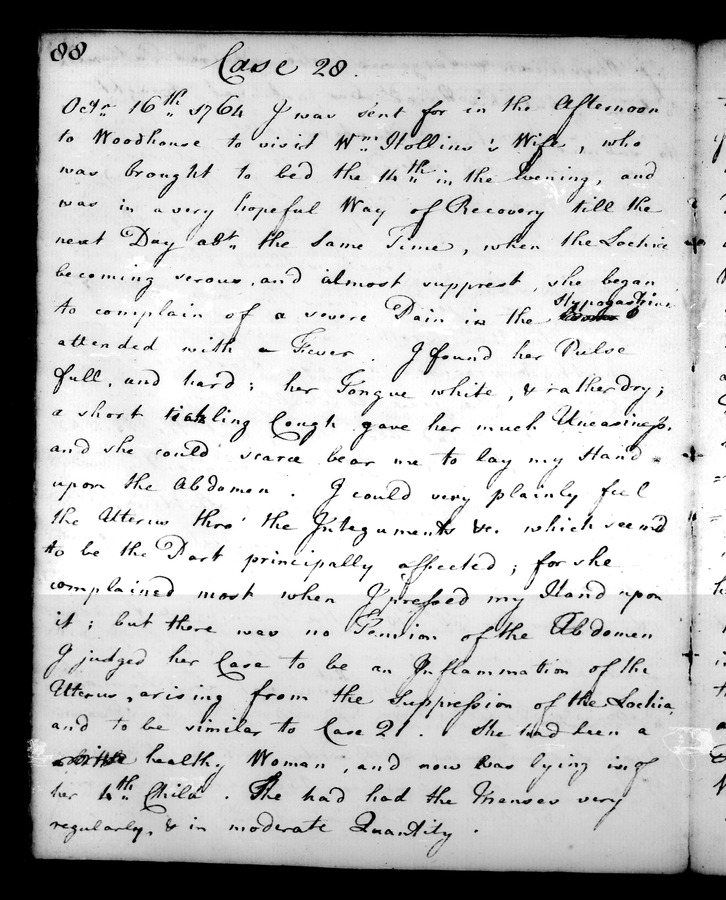 88
Case 28.
Octr. 16th 1764 I was sent for in the Afternoon
to Woodhouse to visit Wm. Hollins's Wife, who
was brought to bed the 14th in the Evening, and
was in a very hopeful Way of Recovery till the
next Day abt. the same Time, when the Lochia
becoming serous, and almost supprest, she began
to complain of a severe Pain in the Hypogastrium
attended with a Fever. I found her Pulse
full, and hard; her Tongue white, & rather dry;
a short tickling Cough gave her much Uneasiness,
and she could scarce bear me to lay my Hand
upon the Abdomen. I could very plainly feel
the Uterus thro' the Integuments &c. which seem'd
to be the Part principally affected; for she
complained most when I pressed my Hand upon
it; but there was no Tension of the Abdomen
I judged her Case to be an Inflammation of the
Uterus, arising from the Suppression of the Lochia,
and to be similar to Case 21. She had been a
healthy Woman, and now was lying in of
her 4th Child. She had had the Menses very
regularly, & in moderate Quantity.